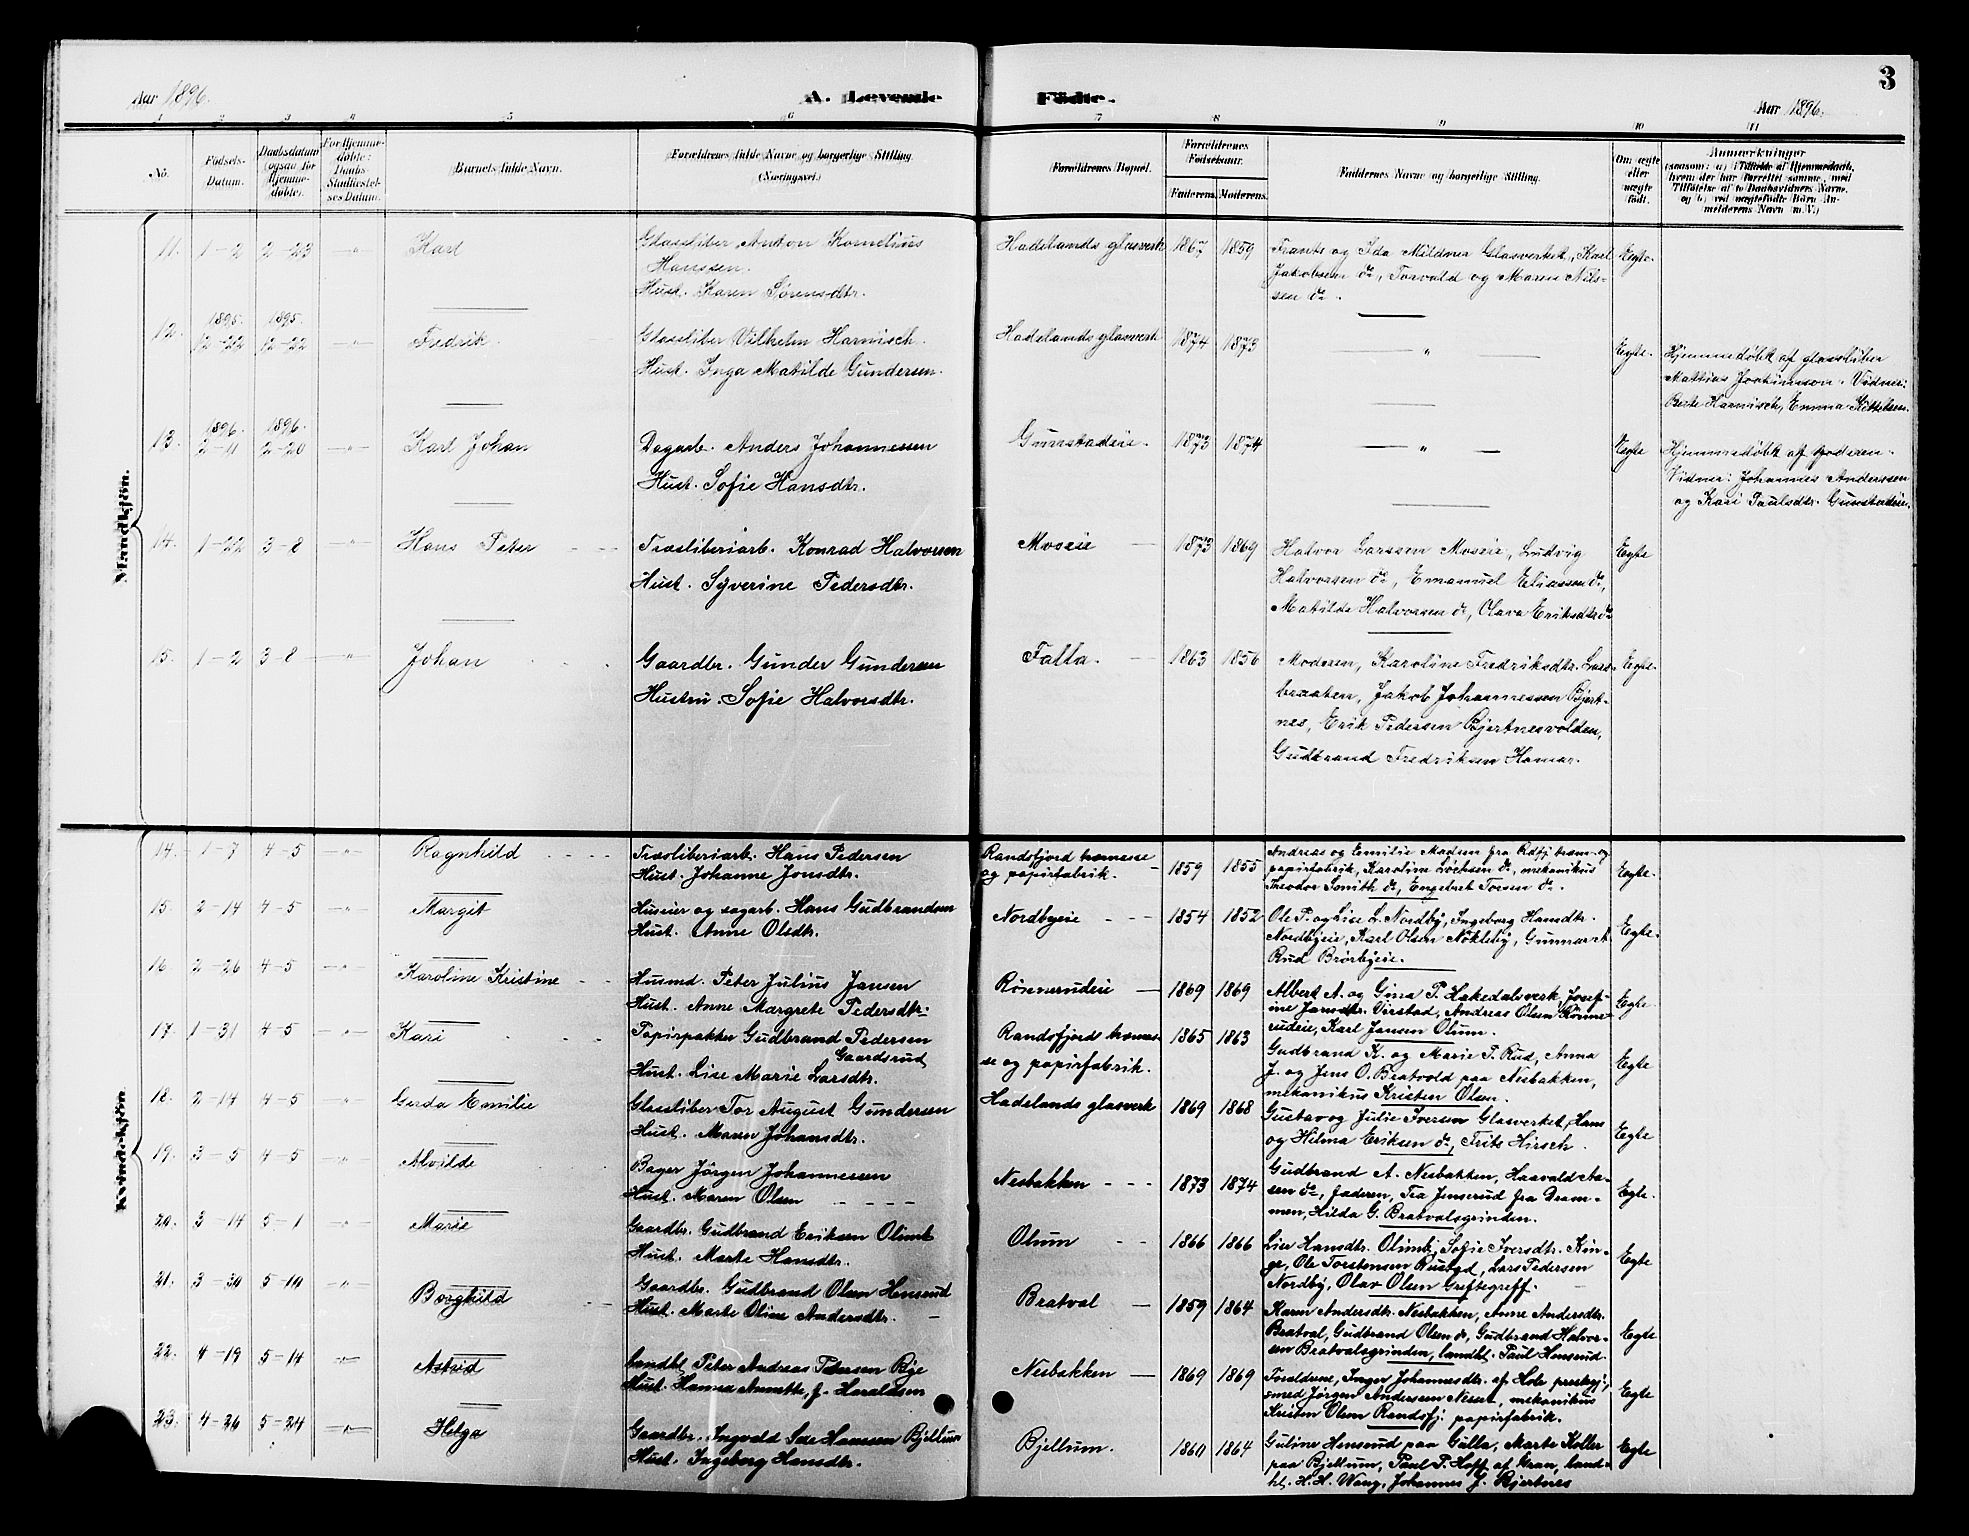 3
Aar 1896.
A. Levende
Födte.
Aar 1896.
1 2 3 4 5 6 7 8 9 10 11
No.
Födsels-
Datum.
Daabsdatum
(ogsaa for
Hjemme-
döbte).
For Hjemme-
döbte:
Daabs-
Stadfæstel-
ses Datum.
Barnets fulde Navn.
Forældrenes fulde Navne og borgerlige Stilling
(Næringsvei.)
Forældrenes Bopæl.
Forældrenes
Födselsaar.
Faderens. Moderens.
Faddernes Navne og borgerlige Stilling.
Om ægte
eller
uægte
födt.
Anmærkninger
(saasom: a) i Tilfælde af Hjemmedaab,
hvem der har forrettet samme, med
Tilföielse af to Daabsvidners Navne,
og b) ved uægtefödte Börn An-
melderens Navn (m. V.)
Mandkjön.
11. 1-2 2-23 -"- Karl
Glassliber Anton Kornelius
Hanssen.
Hust. Karen Sørensdtr.
Hadelands glasverk 1867 1859
Frants og Ida Mildner Glasverket, Karl
Jakobsen do, Torvald og Maren Nils-
sen do.
Egte.
12. 1895. 12-22 1895. 12-22 -"- Fredrik
Glassliber Vilhelm Harnisch.
Hust. Inga Matilde Gundersen.
Hadelands glasverk 1874 1873
"
Egte.
Hjemmedøbt af glassliber
Mathias Joakimson. Vidner:
Berte Harnisch, Emma Kittelsen.
13. 1896. 2-11 1896. 2-20 -"- Karl Johan
Dagarb. Anders Johannessen
Hust. Sofie Hansdtr.
Gunstadeie. 1873 1874
"
Egte
Hjemmedøbt af faderen.
Vidner: Johannes Anderssen
og Kari Paulsdtr. Gunstadeie.
14. 1-22 3-8 -"- Hans Peter
Træsliberiarb. Konrad Halvorsen
Hust. Syverine Pedersdtr.
Moseie 1873 1869
Halvor Larssen Moseie, Ludvig
Halvorsen do, Emanuel Eliassen do,
Matilde Halvorsen do, Olava Eriksdtr do
Egte
15. 1-2 3-8 -"- Johan
Gaardbr. Gunder Gundersen
Hustru. Sofie Halvorsdtr.
Falla. 1863 1856
Moderen, Karoline Fredriksdtr. Lars-
braaten, Jakob Johannessen Bjert-
nes, Erik Pedersen Bjertnesvolden,
Gudbrand Fredriksen Hamar.
Egte.
Kvindekjön
14. 1-7 4-5 -"- Ragnhild
Træsliberiarb. Hans Pedersen
Hust. Johanne Jonsdtr.
Randsfjord træmasse
og papirfabrik. 1859 1855
Andreas og Emilie Madsen fra Rdfj træm- og
papirfabrik, Karoline Lochsen do, mekanikus
Theodor Smith do, Engebret Torsen do.
Egte.
15. 2-14 4-5 -"- Margit
Huseier og sagarb. Hans Gudbrandsen
Hust. Anne Olsdtr.
Nordbyeie 1854 1852
Ole P. og Lise L. Nordby, Ingeborg Hansdtr.
Nordbyeie, Karl Olsen Nøkleby, Gunnar A.
Rud Brørbyeie.
Egte.
16. 2-26 4-5 -"- Karoline Kristine
Husmd. Peter Julius Jansen
Hust. Anne Margrete Pedersdtr.
Rønnerudeie 1869 1869
Albert A. og Gina P. Hakedalsverk, Josef-
ine Jansdtr. Virstad, Andreas Olsen Rønne-
rudeie, Karl Jansen Olum.
Egte.
17. 1-31 4-5 -"- Kari
Papirpakker Gudbrand Pedersen
Gaardsrud
Hust. Lise Marie Larsdtr.
Randsfjord træmas-
se og papirfabrik. 1865 1863
Gudbrand K. og Marie P. Rud, Anna
J. og Jens O. Bratvold paa Nesbakken,
mekanikus Kristen Olsen.
Egte
18. 2-14 4-5 -"- Gerda Emilie
Glassliber Tor August Gundersen
Hust. Maren Johansdtr.
Hadelands glasverk 1869 1868
Gustav og Julie Iversen Glasverket, Hans
og Hilma Eriksen do, Frits Hirsch.
Egte
19. 3-5 4-5 -"- Alvilde
Bager Jörgen Johannessen
Hust. Maren Olsen
Nesbakken 1873 1874
Gudbrand A. Nesbakken, Haavald Aa-
sen do, faderen, Tea Jenserud fra Dram-
men, Hilda G. Bratvalsgrinden.
Egte.
20. 3-14 5-1 -"- Marie
Gaardbr. Gudbrand Eriksen Olimb
Hust. Marte Hansdtr.
Olum 1866 1866
Lise Hansdtr. Olimb, Sofie Iversdtr. Kin-
ge, Ole Torstensen Rustad, Lars Pedersen
Nordby, Olav Olsen Griftegreff.
Egte
21. 3-30 5-10 -"- Borghild
Gaardbr. Gudbrand Olsen Hensrud
Hust. Marte Oline Andersdtr.
Bratval 1859 1864
Karen Andersdtr. Nesbakken, Anne Andersdtr.
Bratval, Gudbrand Olsen do, Gudbrand Halvor-
sen Bratvalsgrinden, landhl. Paul Hensrud.
Egte
22. 4-19 5-14 -"- Astrid
Landhl. Peter Andreas Pedersen Bye
Hust. Hanna Annette, f. Haraldsen
Nesbakken 1869 1869
Foreldrene, Inger Johannesdtr. af Hole prestegj.,
smed Jörgen Anderssen Neset, mekanikus
Kristen Olsen Randsfj. papirfabrik.
Egte
23. 4-26 5-24 -"- Helga
Gaardbr. Ingvald Hanssen Bjellum
Hust. Ingeborg Hansdtr.
Bjellum. 1860 1864
Guline Hensrud paa Gulla, Marte Koller
paa Bjellum, Paul P. Hoff af Gran, land-
hl. H. H. Wang, Johannes J. Bjertnes
Egte